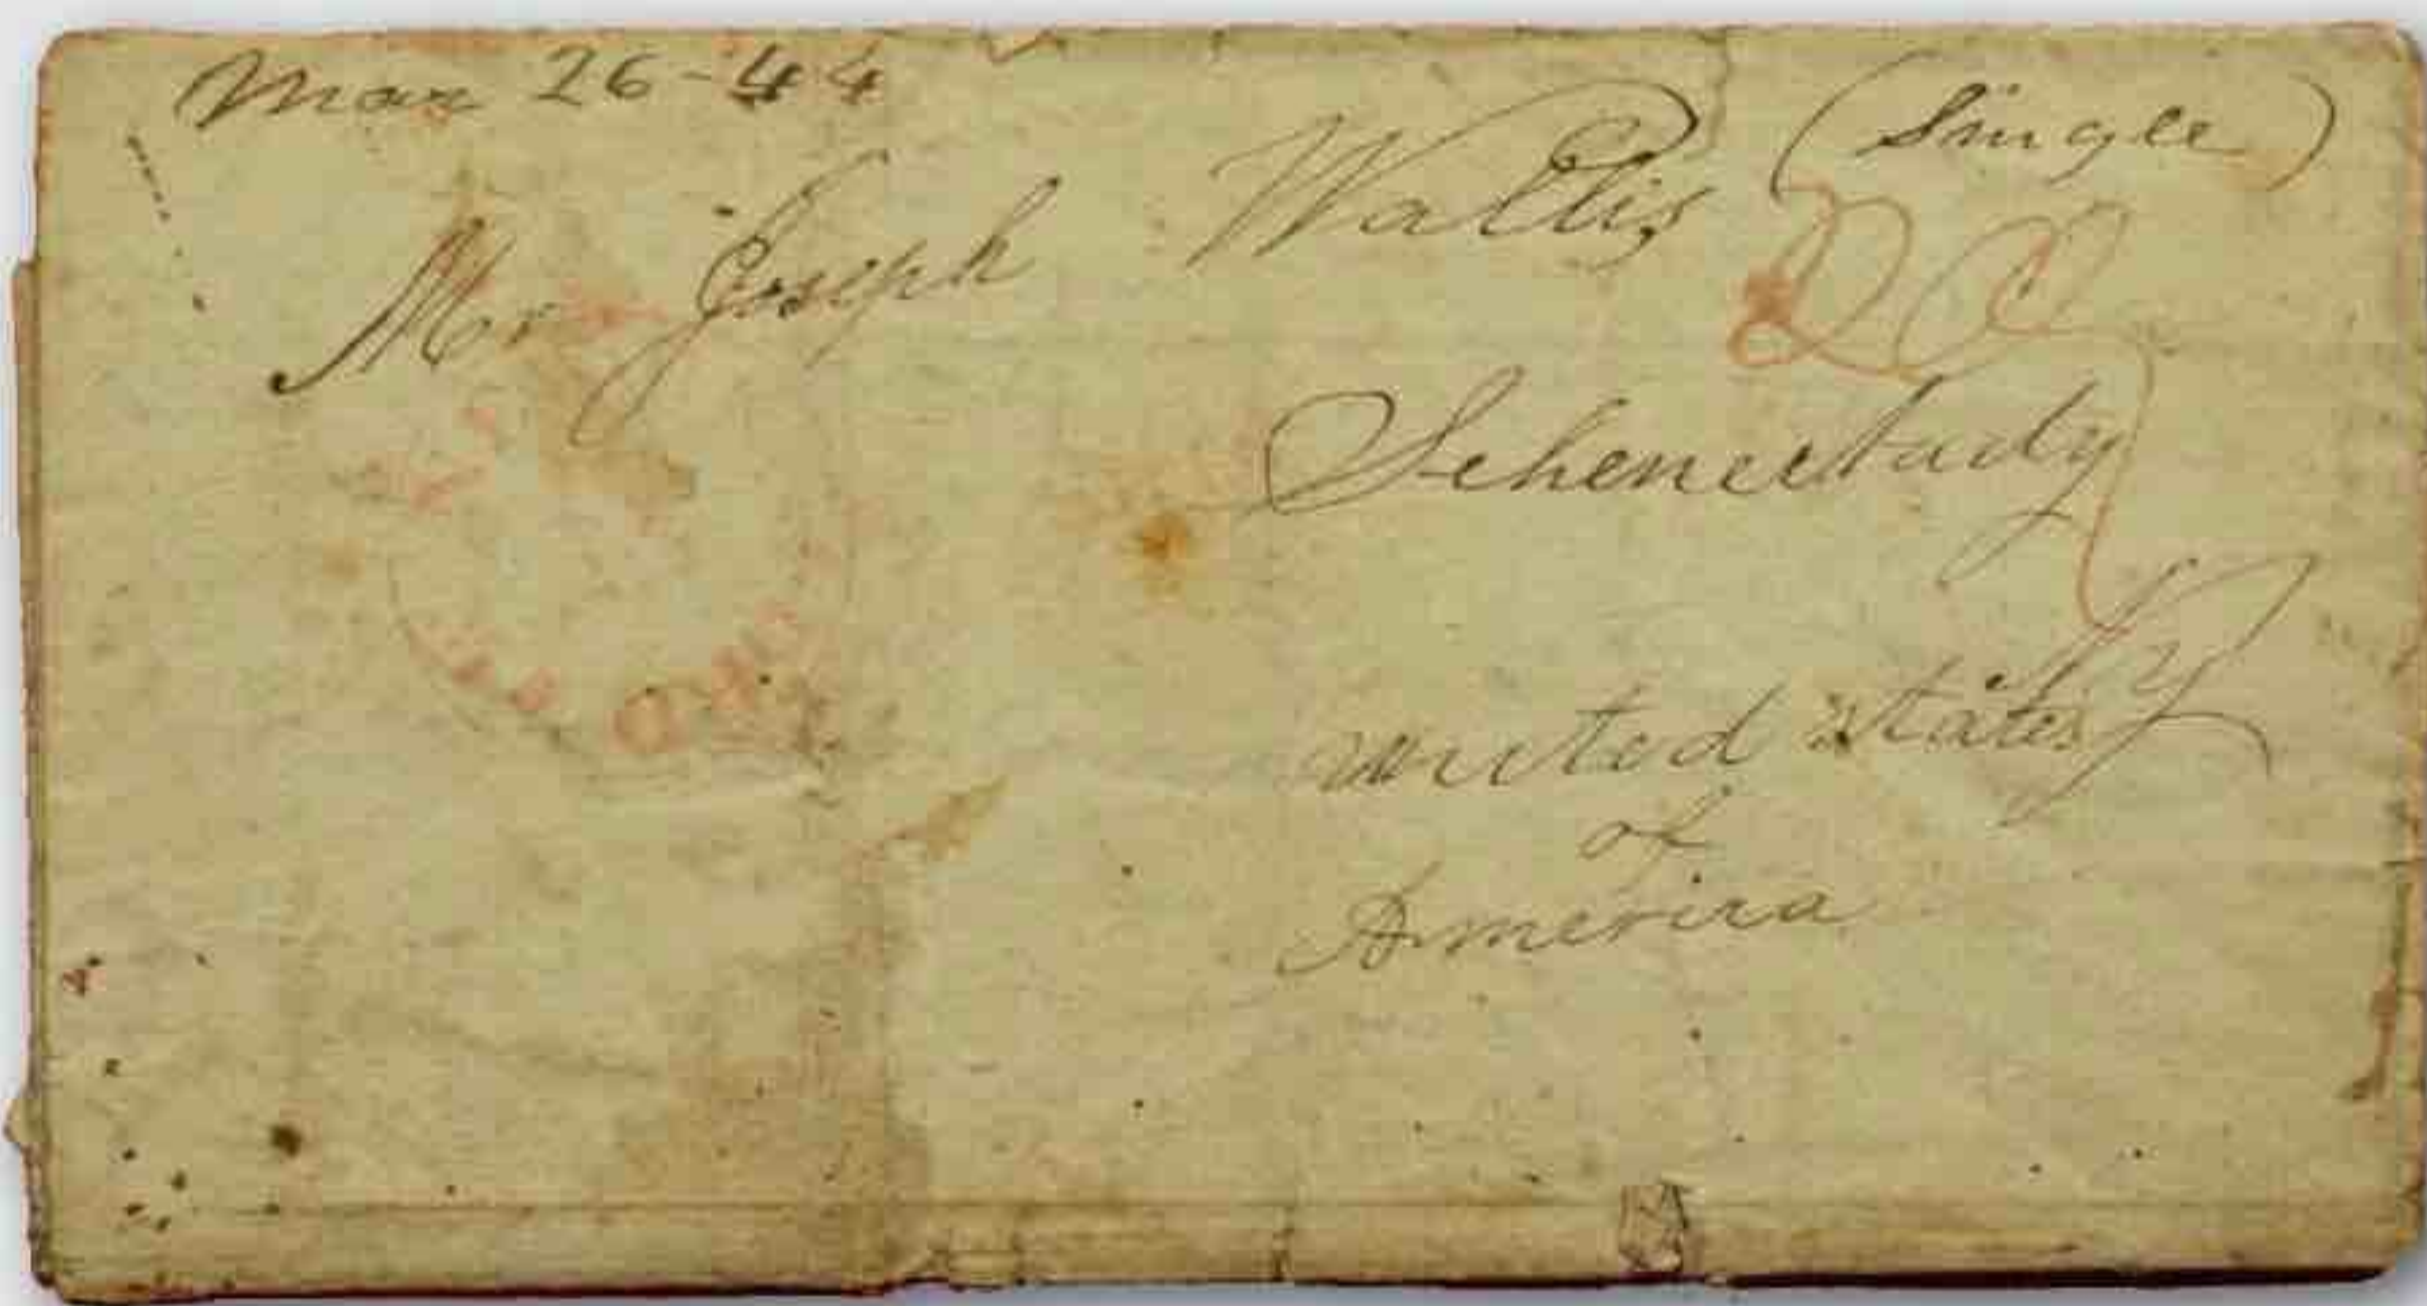 Mar 26-44
(Single)
Mr Joseph Wallis
Schenectady
N Y
united States
of
America